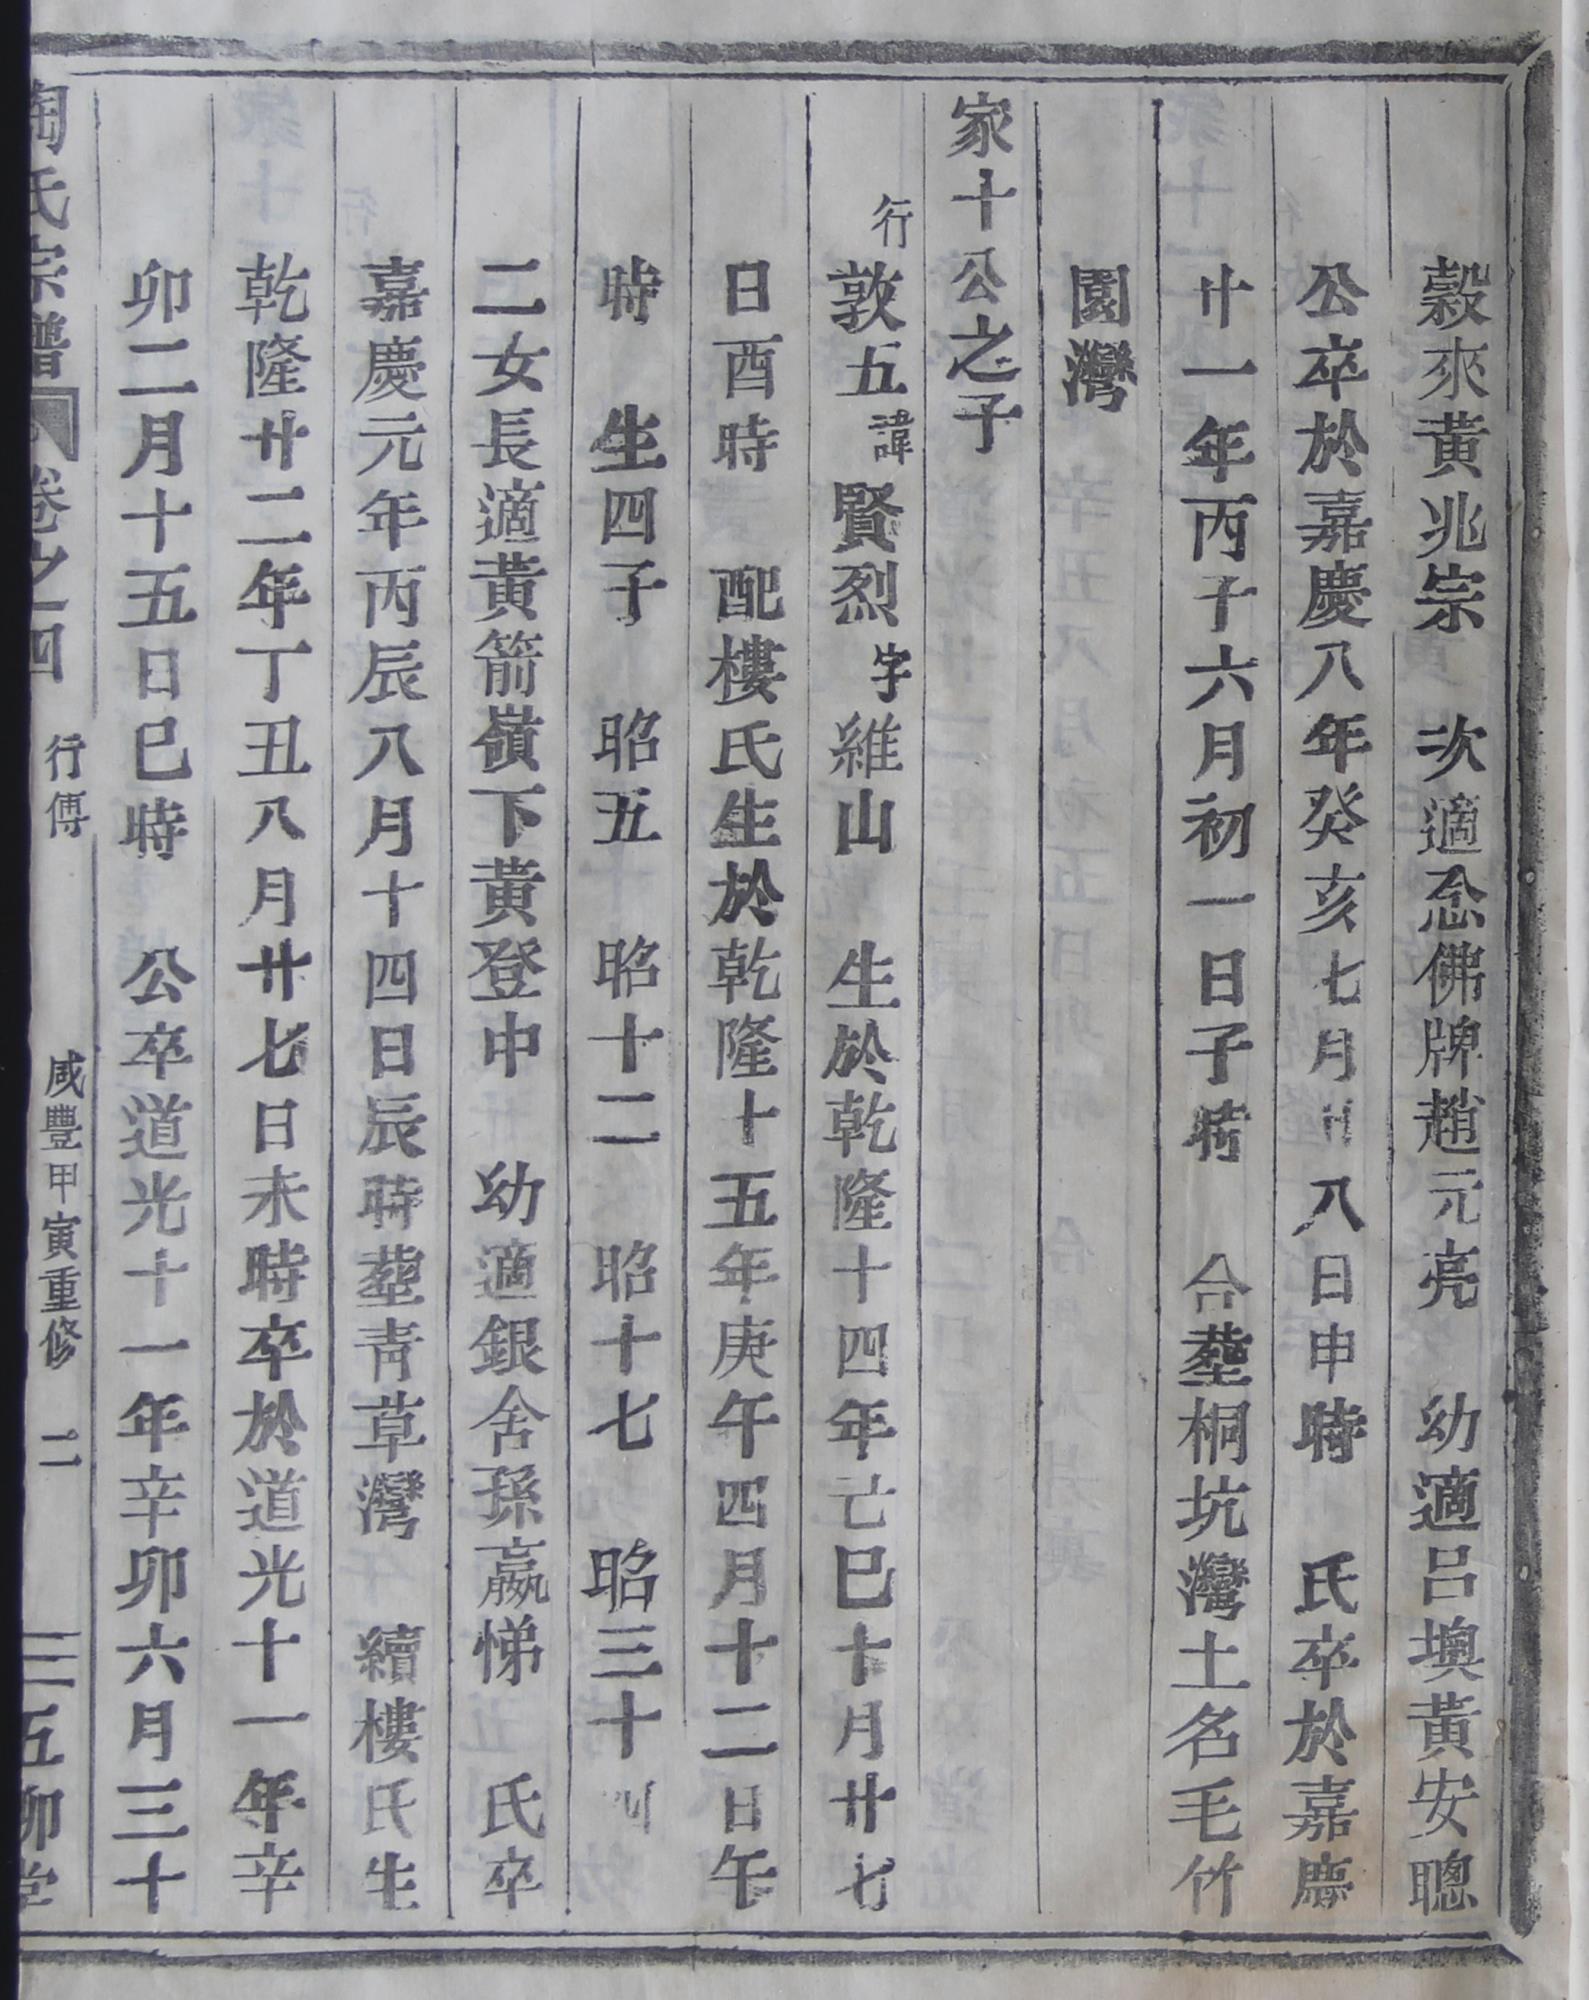 榖來黃兆宗　次適念佛牌趙元亮　幼適吕墺黃安聰
公卒於嘉慶八年癸亥七月廿八日申時　氏卒於嘉慶
廿一年丙子六月初一日子時　合塟桐坑灣土名毛竹
園灣
家十公之子
行敦五諱賢烈字維山　生於乾隆十四年己巳十月廿七
日酉時　配樓氏生於乾隆十五年庚午四月十二日午
時　生四子　昭五　昭十二　昭十七　昭三十四
二女長適黃箭嶺下黃登中　幼適銀舍孫嬴悌　氏卒
嘉慶元年丙辰八月十四日辰時塟青草灣　續樓氏生
乾隆廿二年丁丑八月廿七日未時卒於道光十一年辛
卯二月十五日巳時　公卒道光十一年辛卯六月三十
陶氏宗譜　卷之四　行傳　咸豐甲寅重修　二　五柳堂